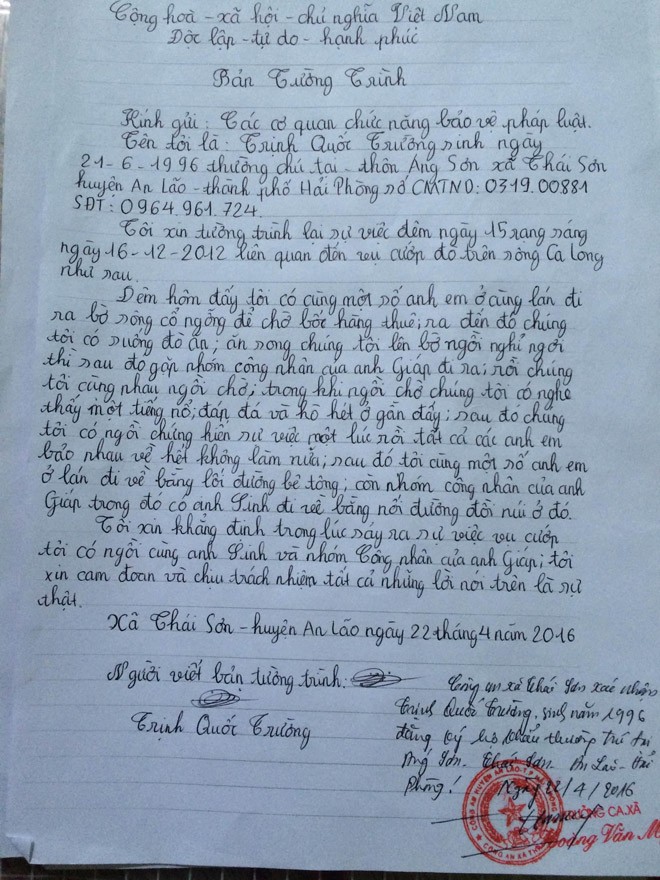 Cộng hoà - xã hội - chủ nghĩa Việt Nam
Độc lập - tự do - hạnh phúc
Bản Tường Trình
Kính gửi: Các cơ quan chức năng bảo vệ pháp luật.
Tên tôi là: Trịnh Quốc Trường sinh ngày
21-6-1996 thường chú tại - thôn Áng Sơn xã Thái Sơn
huyện An Lão - thành phố Hải Phòng số CMTND: 0319.00881
SĐT: 0964.961.724.
Tôi xin tường trình lại sự việc đêm ngày 15 rạng sáng
ngày 16-12-2012 liên quan đến vụ cướp đò trên sông Ca Long
như sau.
Đêm hôm đấy tôi có cùng một số anh em ở cùng lán đi
ra bờ sông cổ ngỗng để chờ bốc hàng thuê; ra đến đó chúng
tôi có xuống đò ăn; ăn song chúng tôi lên bờ ngồi nghỉ ngơi
thì sau đó gặp nhóm công nhân của anh Giáp đi ra; rồi chúng
tôi cùng nhau ngồi chờ; trong khi ngồi chờ chúng tôi có nghe
thấy một tiếng nổ; đạn đá và hô hét ở gần đấy; sau đó chúng
tôi có ngồi chứng kiến sự việc một lúc rồi tất cả các anh em
bảo nhau về hết không làm nữa; sau đó tôi cùng một số anh em
ở lán đi về bằng lối đường bê tông; còn nhóm công nhân của anh
Giáp trong đó có anh Sinh đi về bằng nối đường đồi núi ở đó.
Tôi xin khẳng định trong lúc sảy ra sự việc vụ cướp
tôi có ngồi cùng anh Sinh và nhóm Công nhân của anh Giáp; tôi
xin cam đoan và chịu trách nhiệm tất cả những lời nói trên là sự
thật.
Xã Thái Sơn - huyện An Lão ngày 22 tháng 4 năm 2016
Người viết bản tường trình:
Trịnh Quốc Trường
Công an xã Thái Sơn xác nhận
Trịnh Quốc Trường, sinh năm 1996
đăng ký hộ khẩu thường trú tại
Áng Sơn - Thái Sơn - An Lão - Hải
Phòng!
Ngày 22/4/2016
TRƯỞNG CA.XÃ
Hoàng Văn